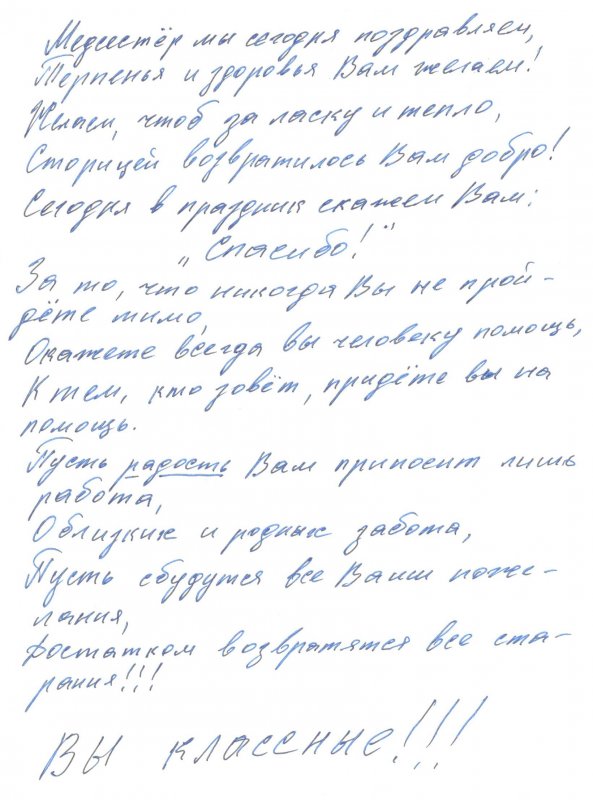 Медсестёр мы сегодня поздравляем,
Терпенья и здоровья Вам желаем!
Желаем, чтоб за ласку и тепло,
Сторицей возвратилось Вам добро!
Сегодня в праздник скажем Вам:
„Спасибо!"
За то, что никогда Вы не прой-
дёте мимо,
Окажете всегда вы человеку помощь,
К тем, кто зовёт, придёте вы на
помощь.
Пусть радость Вам приносит лишь
работа,
О близких и родных забота,
Пусть сбудутся все Ваши поже-
лания,
Достатком возвратятся все ста-
рания!!!
Вы классные!!!